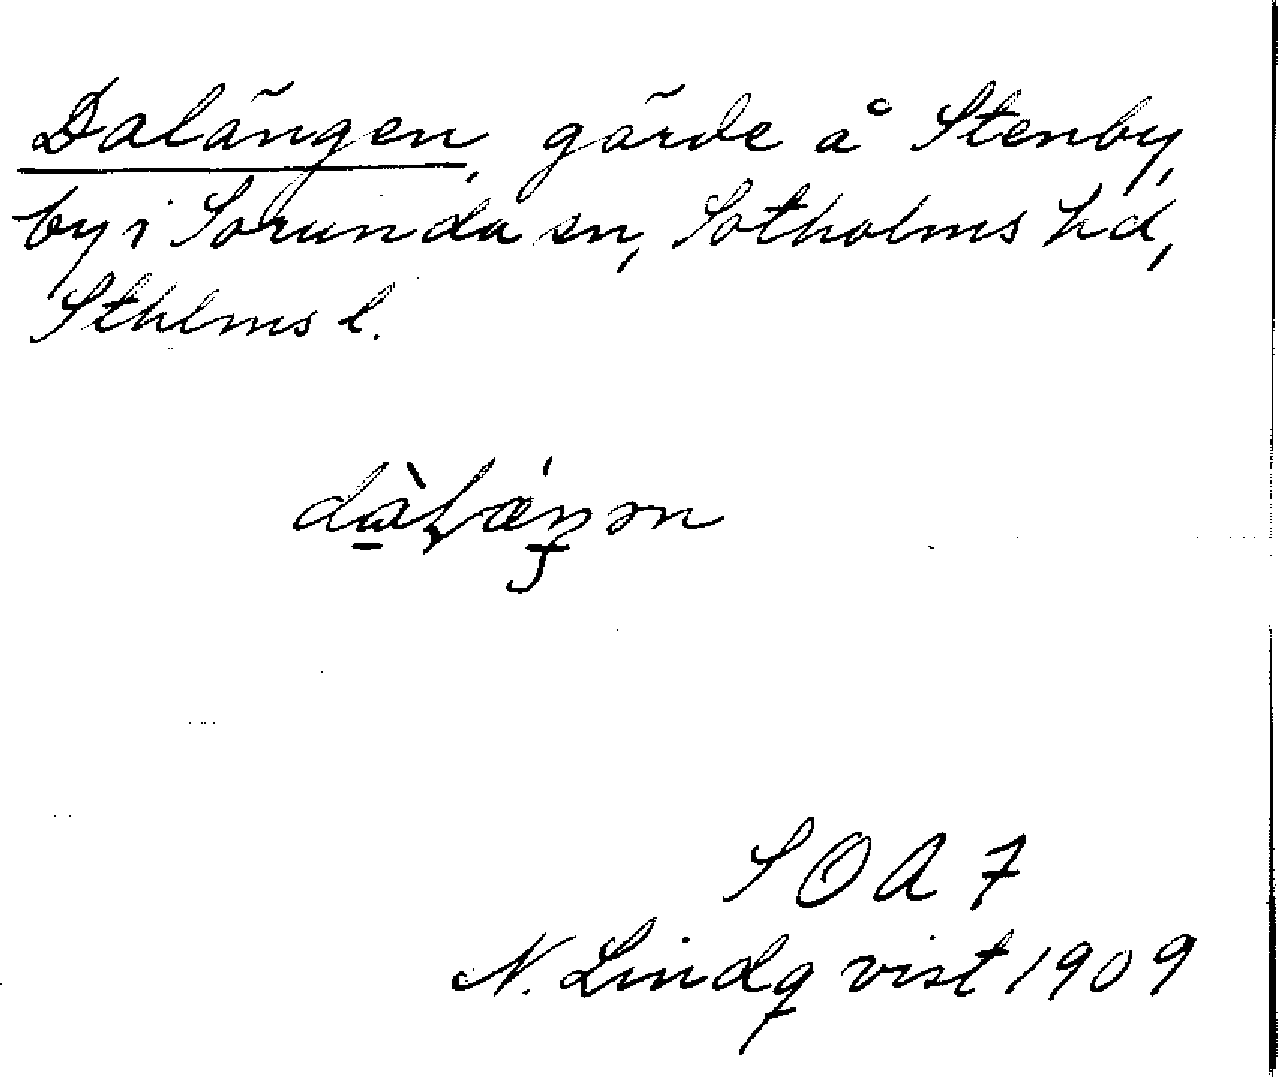 Dalängen, gärde å Stenby,
by i Sorunda sn, Sotholms hd,
Sthlms l.
SOA 7
N. Lindqvist 1909